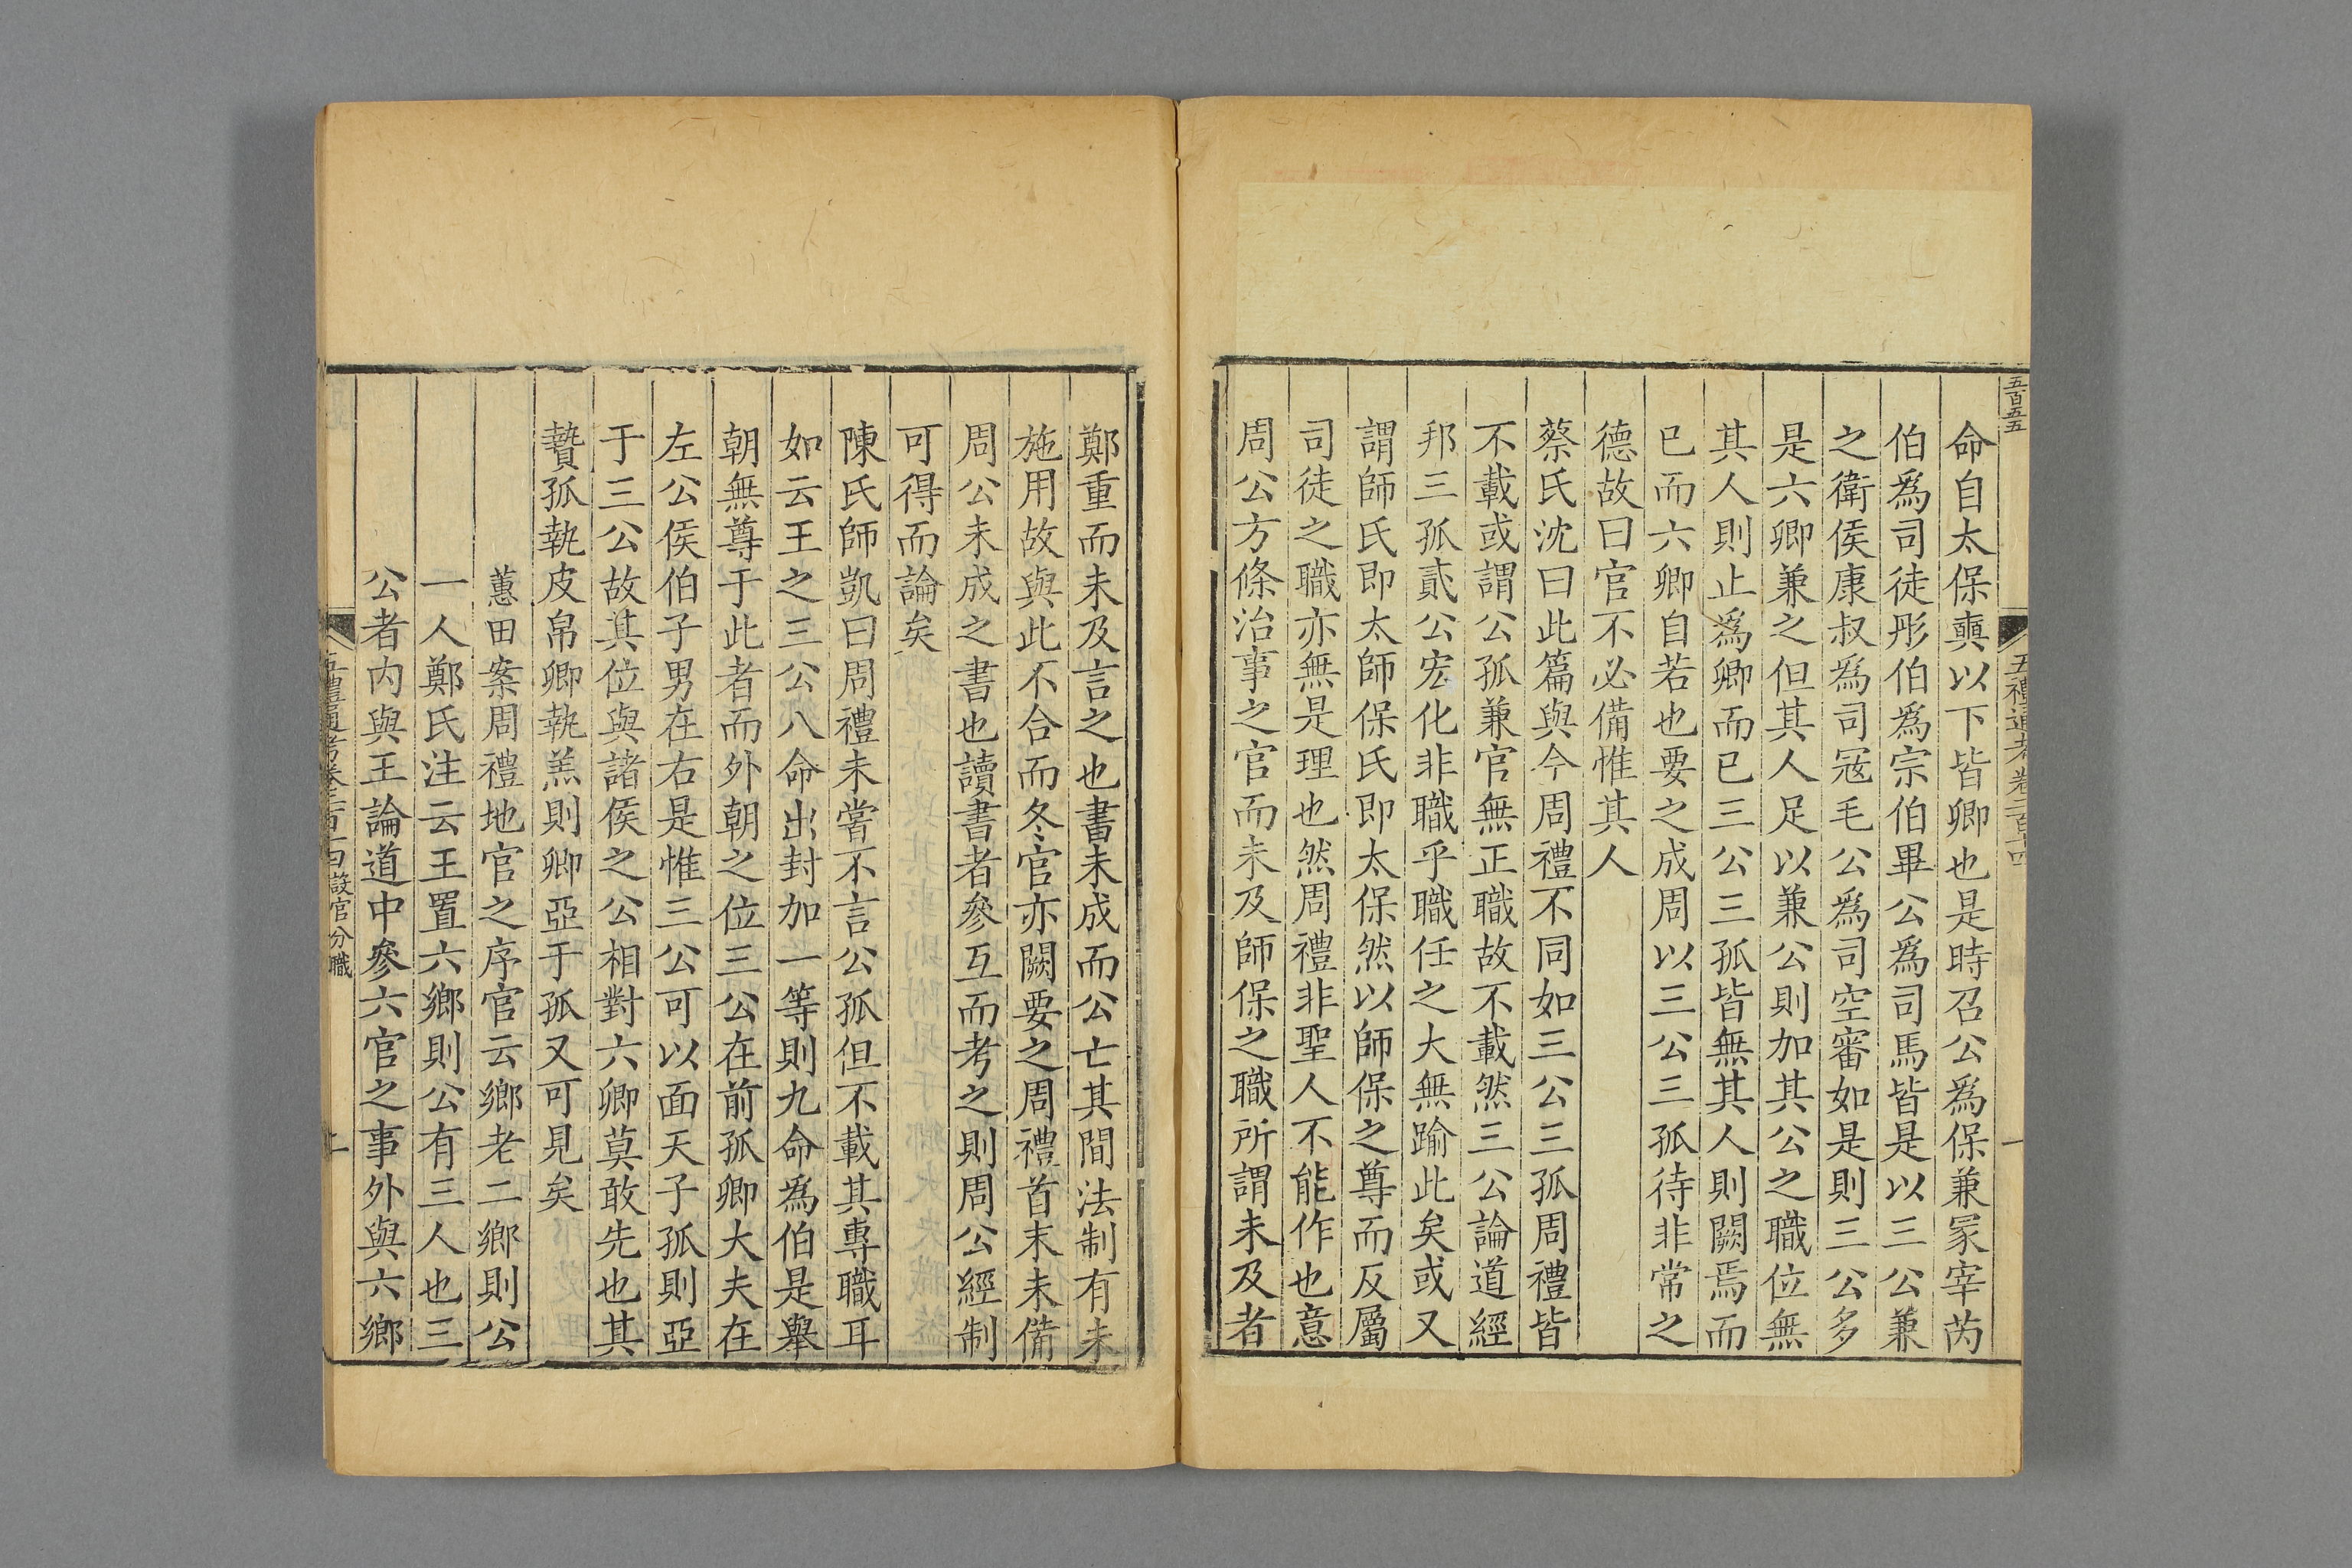 五百五五
五禮通考卷二百十四
一
命自太保奭以下皆卿也是時召公爲保兼冢宰芮
伯爲司徒彤伯爲宗伯畢公爲司馬皆是以三公兼
之衛侯康叔爲司寇毛公爲司空審如是則三公多
是六卿兼之但其人足以兼公則加其公之職位無
其人則止爲卿而已三公三孤皆無其人則闕焉而
已而六卿自若也要之成周以三公三孤待非常之
德故曰官不必備惟其人
蔡氏沈曰此篇與今周禮不同如三公三孤周禮皆
不載或謂公孤兼官無正職故不載然三公論道經
邦三孤貳公宏化非職乎職任之大無踰此矣或又
謂師氏即太師保氏即太保然以師保之尊而反屬
司徒之職亦無是理也然周禮非聖人不能作也意
周公方條治事之官而未及師保之職所謂未及者
鄭重而未及言之也書未成而公亡其間法制有未
施用故與此不合而冬官亦闕要之周禮首末未備
周公未成之書也讀書者參互而考之則周公經制
可得而論矣
陳氏師凱曰周禮未嘗不言公孤但不載其專職耳
如云王之三公八命出封加一等則九命爲伯是舉
朝無尊于此者而外朝之位三公在前孤卿大夫在
左公侯伯子男在右是惟三公可以面天子孤則亞
于三公故其位與諸侯之公相對六卿莫敢先也其
贄孤執皮帛卿執羔則卿亞于孤又可見矣
蕙田案周禮地官之序官云鄉老二鄉則公
一人鄭氏注云王置六鄉則公有三人也三
公者內與王論道中參六官之事外與六鄉
五禮通考卷二百十四 設官分職